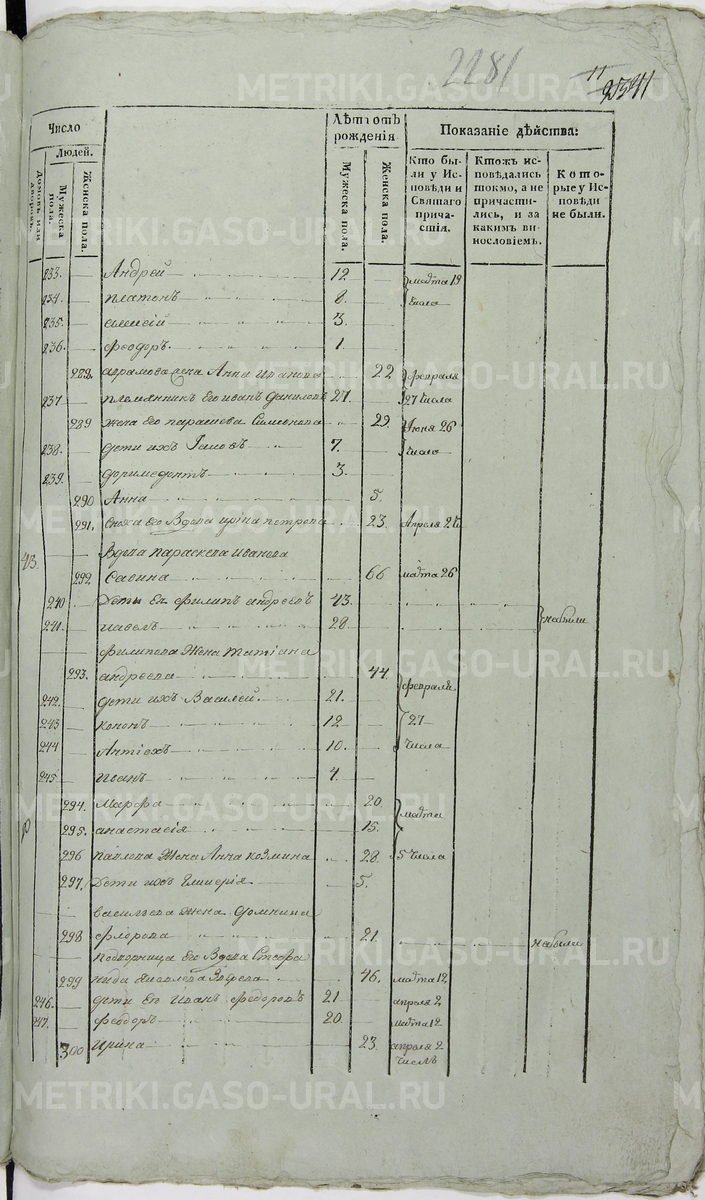 2281
11
2541
Число
Людей.
Домовъ или дворовъ.
Мужеска пола.
Женска пола.
Лѣтъ отъ рожденія
Мужеска пола.
Женска пола.
Показаніе дѣйства:
Кто бы-
ли у Ис-
повѣди и
Святаго
прича-
стія.
Ктожъ ис-
повѣдались
токмо, а не
причасти-
лись, и за
какимъ ви-
нословіемъ.
Кото-
рые у Ис-
повѣди
не были.
233. Андрей 12 марта 19
234. платонъ 8. числа
235. алексѣй 3.
236. феодоръ. 1.
288. жена Анна Иванова 22 февраля
237 племянникъ Его иванъ даниловъ 27. 27 числа
289 жена Его парасковья Симеонова 29. Июня 26
238. дети ихъ Іаковъ 7. числа
239. доримедонтъ 3.
290 Анна 5.
291. сноха его Вдова ирина петрова 23. Апреля 26
43. Вдова параскева иванова
292 Савина 66 марта 26
240 Дети Ея филипъ андреевъ 43.
241. павелъ 28. небыли
филипова Жена татіана
293. андреева 44. февраля
242. дети ихъ Василей. 21.
243 кононъ 12 27
244 Антіохъ 10. числа
245 иванъ 4.
294. Марфа 20. марта
295. анастасія 15.
296 павлова Жена Анна козмина 28. 5 числа
297. Дети ихъ Гликерія 5.
васильева жена домнина
298 флорова 21. небыли
подворница Ево Вдова Стефа
299 нида 46. марта 12
246. дети Ея Иванъ федоровъ 21 апреля 2
247. феодоръ 20. марта 12
300 ирина 23 апреля 2
числъ
METRIKI.GASO-URAL.RU